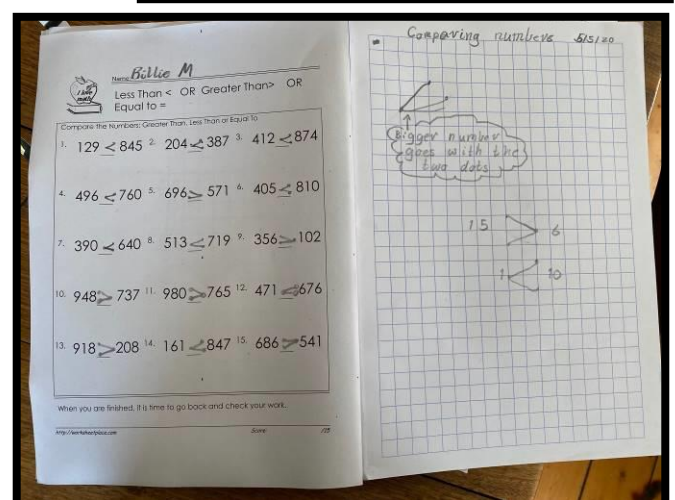 Name Billie M
I love math
Less Than < OR Greater Than> OR
Equal to =
Compare the Numbers: Greater Than, Less Than or Equal to
1. 129 < 845 2. 204 < 387 3. 412 < 874
4. 496 < 760 5. 696 > 571 6. 405 < 810
7. 390 < 640 8. 513 < 719 9. 356 > 102
10. 948 > 737 11. 980 > 765 12. 471 < 676
13. 918 > 208 14. 161 < 847 15. 686 > 541
When you are finished, it is time to go back and check your work.
http://worksheetplace.com Score /15
Comparing numbers 5/5/20
Bigger number
goes with the
two dots
15 > 6
1 < 10